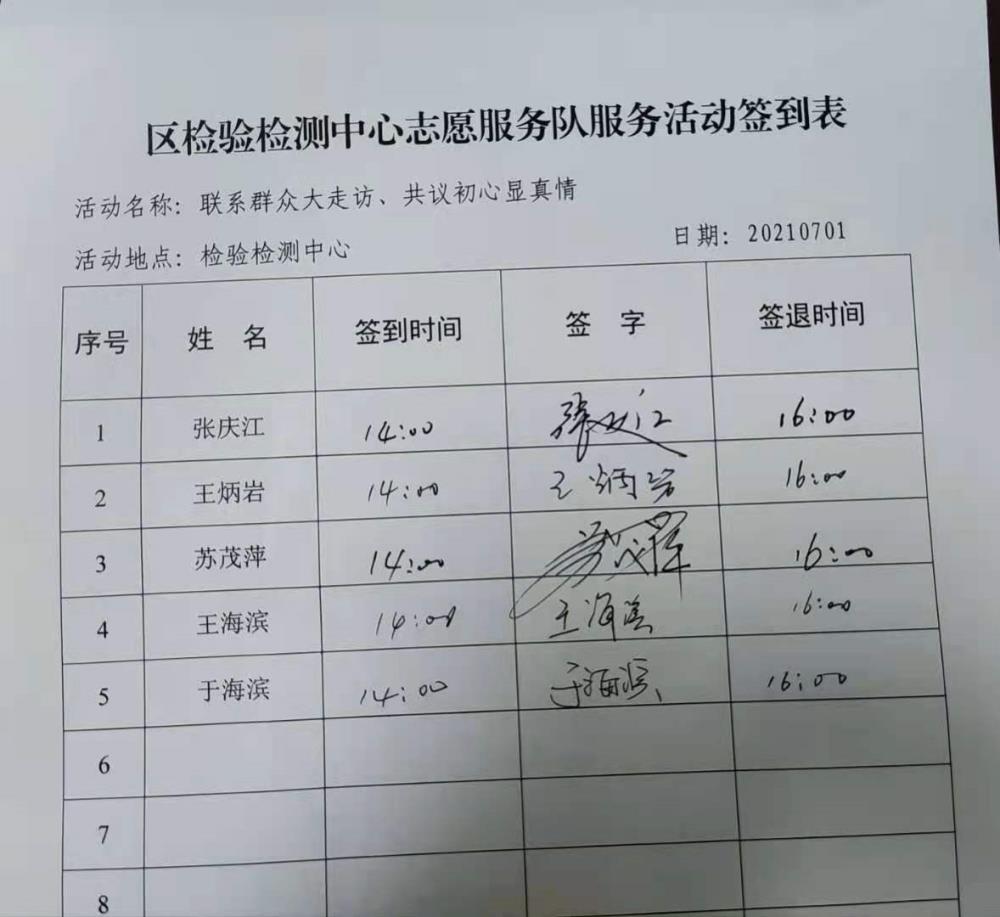 区检验检测中心志愿服务队服务活动签到表
活动名称：联系群众大走访、共议初心显真情
活动地点：检验检测中心 日期：20210701
序号 姓 名 签到时间 签 字 签退时间
1 张庆江 14:00 张庆江 16:00
2 王炳岩 14:00 王炳岩 16:00
3 苏茂萍 14:00 苏茂萍 16:00
4 王海滨 14:00 王海滨 16:00
5 于海滨 14:00 于海滨 16:00
6
7
8